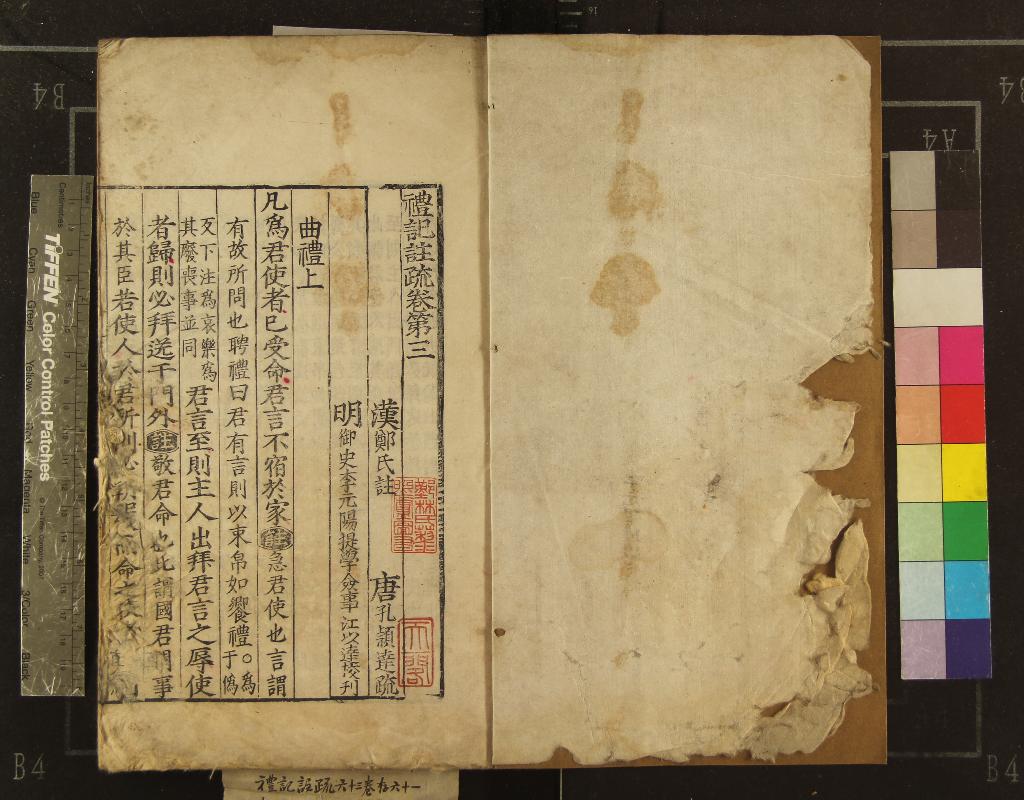 禮記註疏卷第三
漢鄭氏註 唐孔穎達疏
明御史李元陽提學僉事江以達校刊
曲禮上
凡爲君使者已受命君言不宿於家註急君使也言謂
有故所問也聘禮曰君有言則以束帛如饗禮○爲于僞
反下注爲哀樂爲
其廢喪事並同
君言至則主人出拜君言之辱使
者歸則必拜送于門外註敬君命也此謂國君問事
於其臣若使人於君所則必
命之
禮記註疏六十三卷存六十一
B4
B4
A4
B4
B4
TIFFEN Color Control Patches
Centimetres
Blue
Cyan
Green
Yellow
Red
Magenta
White
3/Color
Black